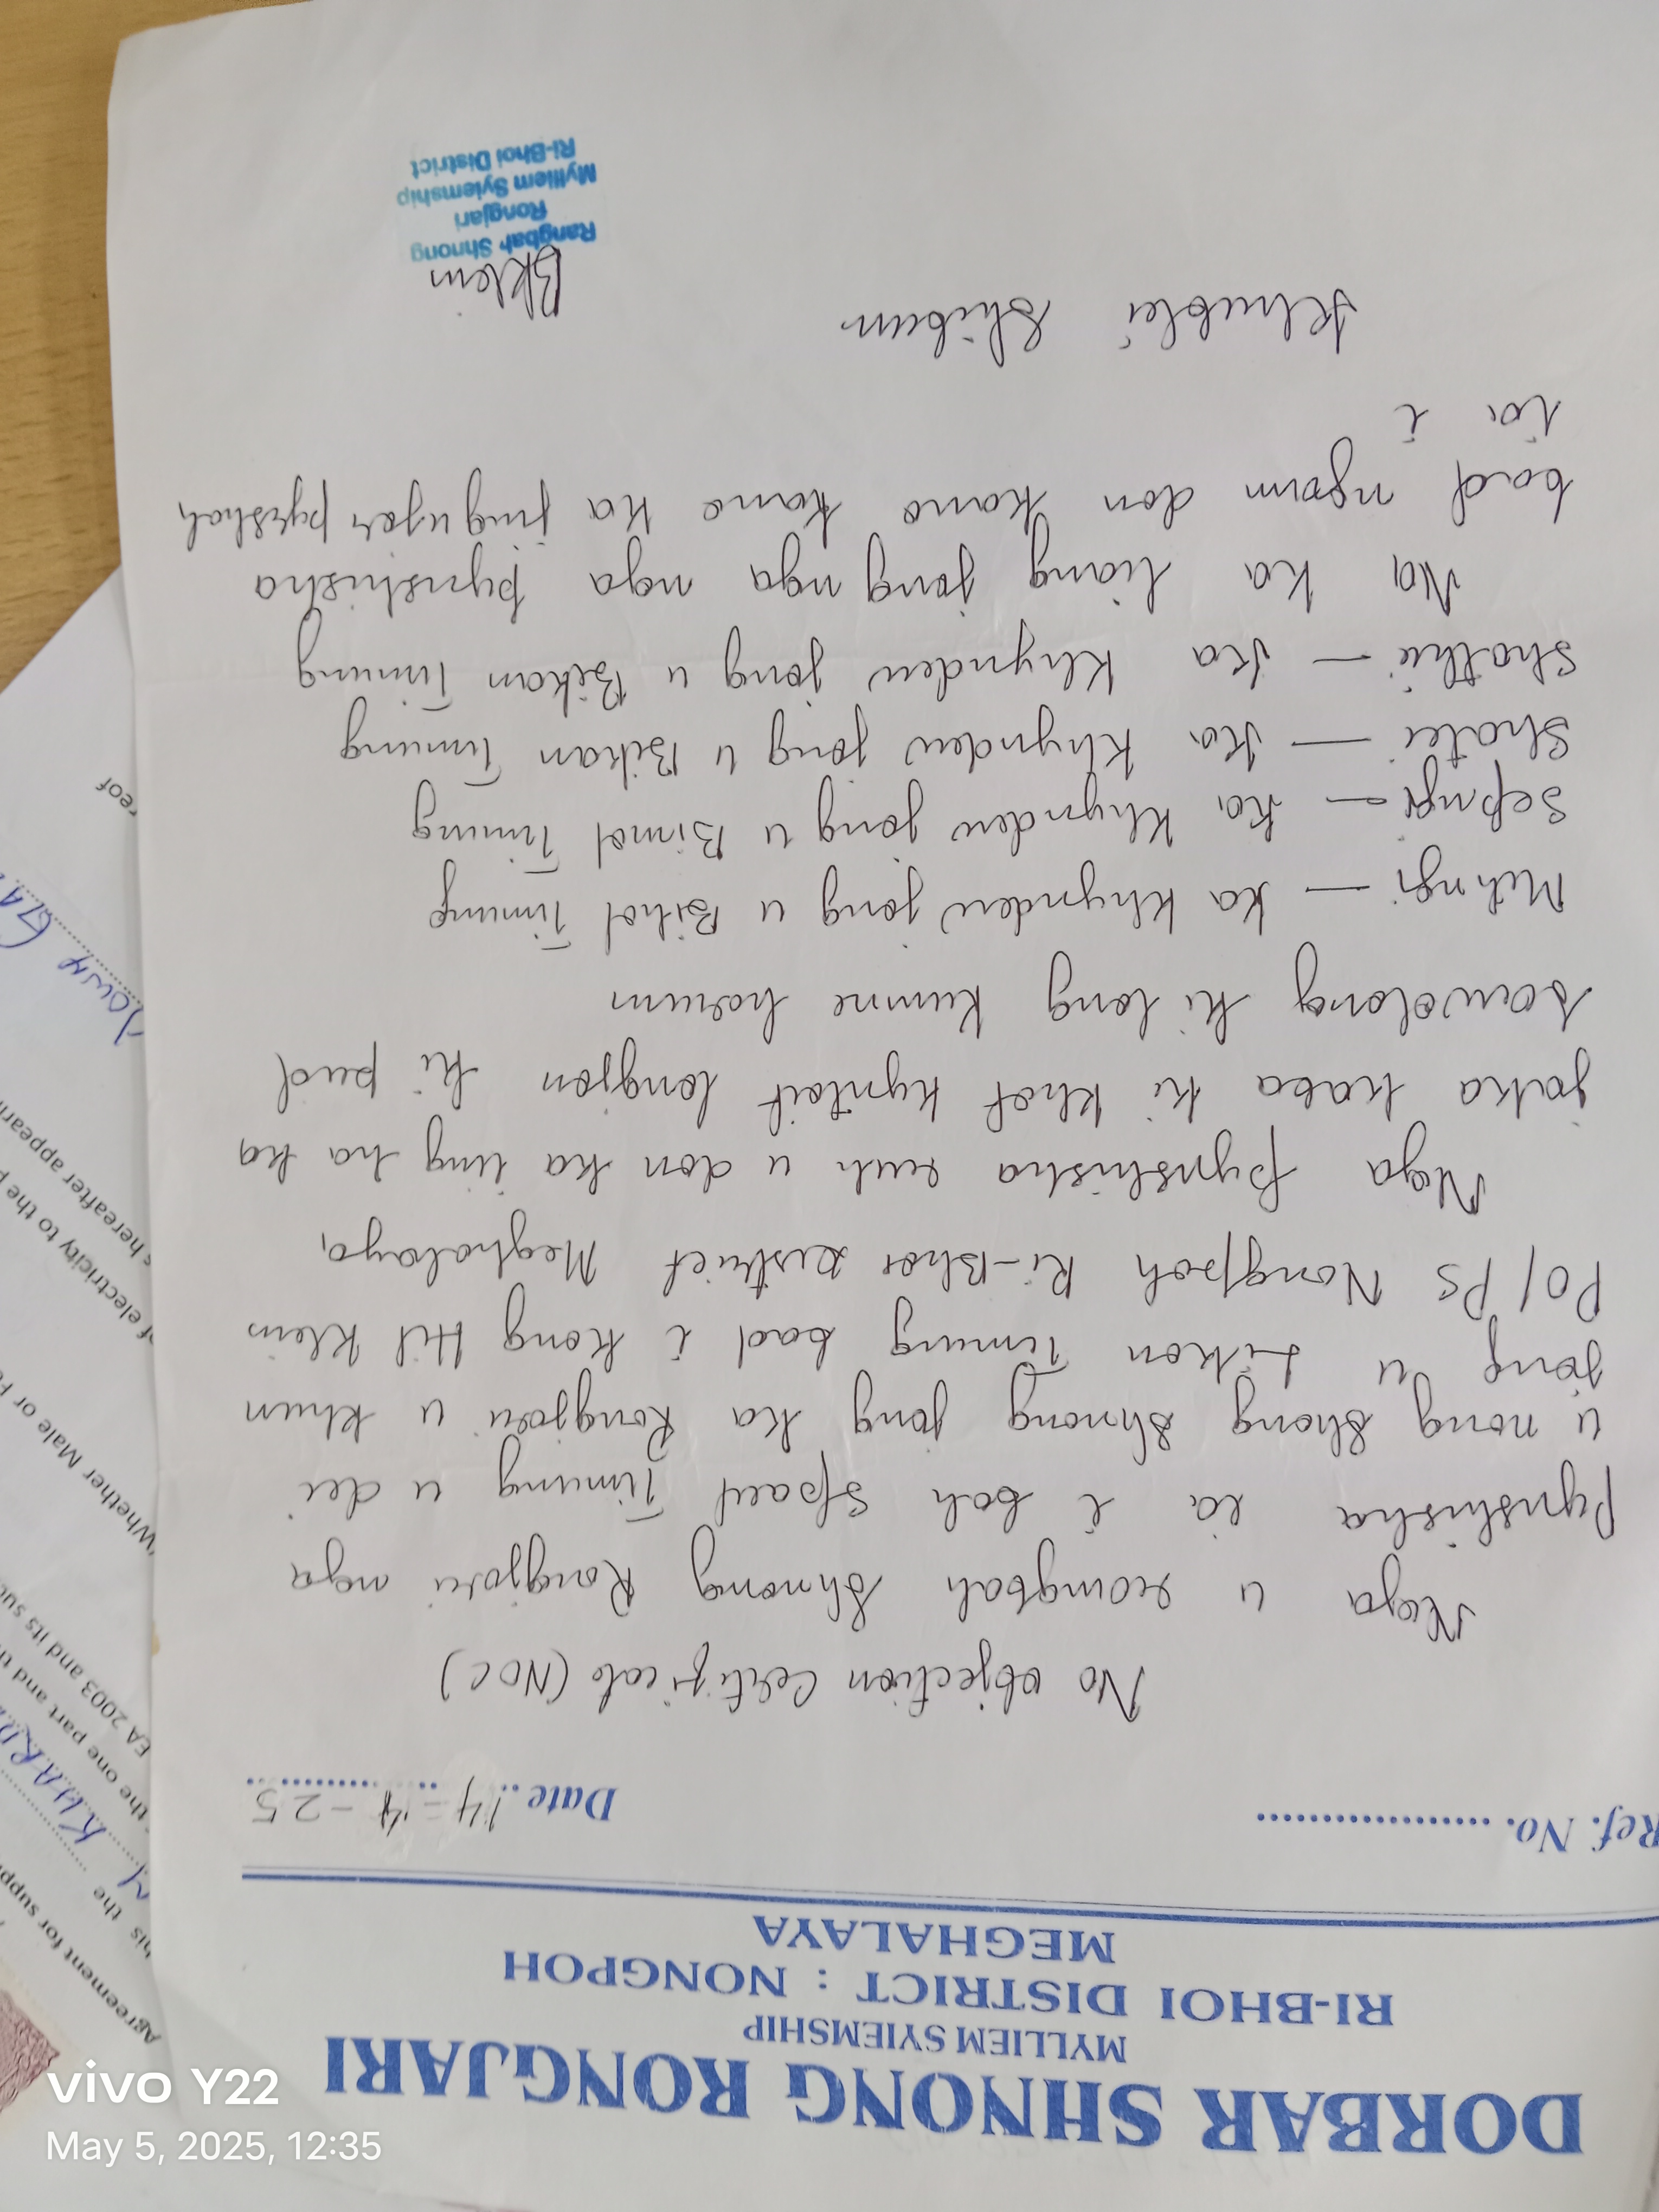 DORBAR SHNONG RONGJARI
MYLLIEM SYIEMSHIP
RI-BHOI DISTRICT : NONGPOH
MEGHALAYA
Ref. No. ....................
Date..14-4-25
No objection Certificate (NOC)
Nga u rangbah Shnong Rongjari nga
Pynshisha ia i bah Timung u dei
u nong shong shnong jong ka Rongjari u khun
jong u Likon Timung bad i Kong Hil Klein
PO/PS Nongpoh Ri-Bhoi District Meghalaya,
Nga pynshisha ruh u don ka iing ha ka
jaka kaba ki khet kyntait longjon ki pud
sawdong ki long kumne harum
Mihngi — ka khyndew jong u Bihol Timung
Sepngi — ka khyndew jong u Bimol Timung
Shatei — ka khyndew jong u Bikan Timung
Shathie — ka khyndew jong u Bikan Timung
Na ka liang jong nga nga pynshisha
bad ngam don kano kano ka jingujor pyrshah
ia i
Khublei Shibun
BKlein
Rangbah Shnong
Rongjari
Mylliem Syiemship
Ri-Bhoi District
Agreement for supp
his the
the one part and th
EA 2003 and its suc
Whether Male or Fe
of electricity to the p
s hereafter appearin
reof
vivo Y22
May 5, 2025, 12:35